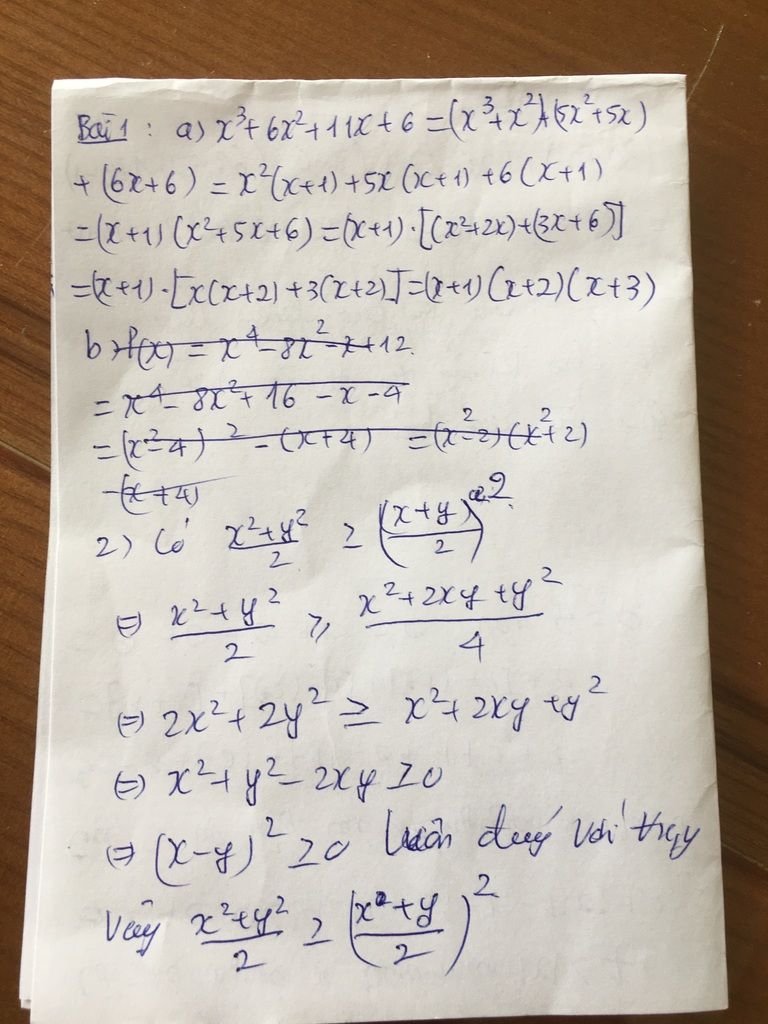 Bài 1 : a) x³ + 6x² + 11x + 6 = (x³ + x²) + (5x² + 5x)
+ (6x + 6) = x²(x+1) + 5x(x+1) + 6(x+1)
= (x+1)(x² + 5x + 6) = (x+1) · [(x² + 2x) + (3x + 6)]
= (x+1) · [x(x+2) + 3(x+2)] = (x+1)(x+2)(x+3)
b) f(x) = x⁴ - 8x² - x + 12
= x⁴ - 8x² + 16 - x - 4
= (x² - 4)² - (x+4) = (x² - 2)(x² + 2)
- (x+4)
2) Có (x² + y²)/2 ≥ ((x+y)/2)²
⇔ (x² + y²)/2 ≥ (x² + 2xy + y²)/4
⇔ 2x² + 2y² ≥ x² + 2xy + y²
⇔ x² + y² - 2xy ≥ 0
⇔ (x-y)² ≥ 0 luôn đúng với
Vậy (x² + y²)/2 ≥ ((x + y)/2)²